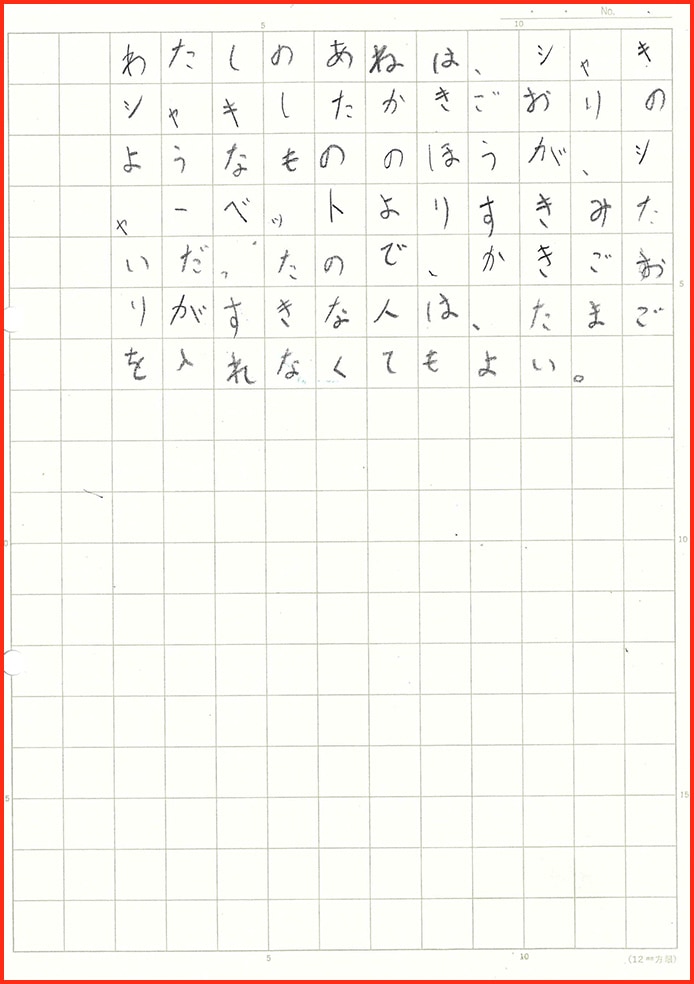 No.
5
10
わたしのあねは、シャキ
シャキしたかきごおりの
ようなもののほうが、シ
ャーベットよりすきみた
いだったので、かきごお
りがすきな人は、たまご
を入れなくてもよい。
5
10
15
5
10
(12㎜方眼)